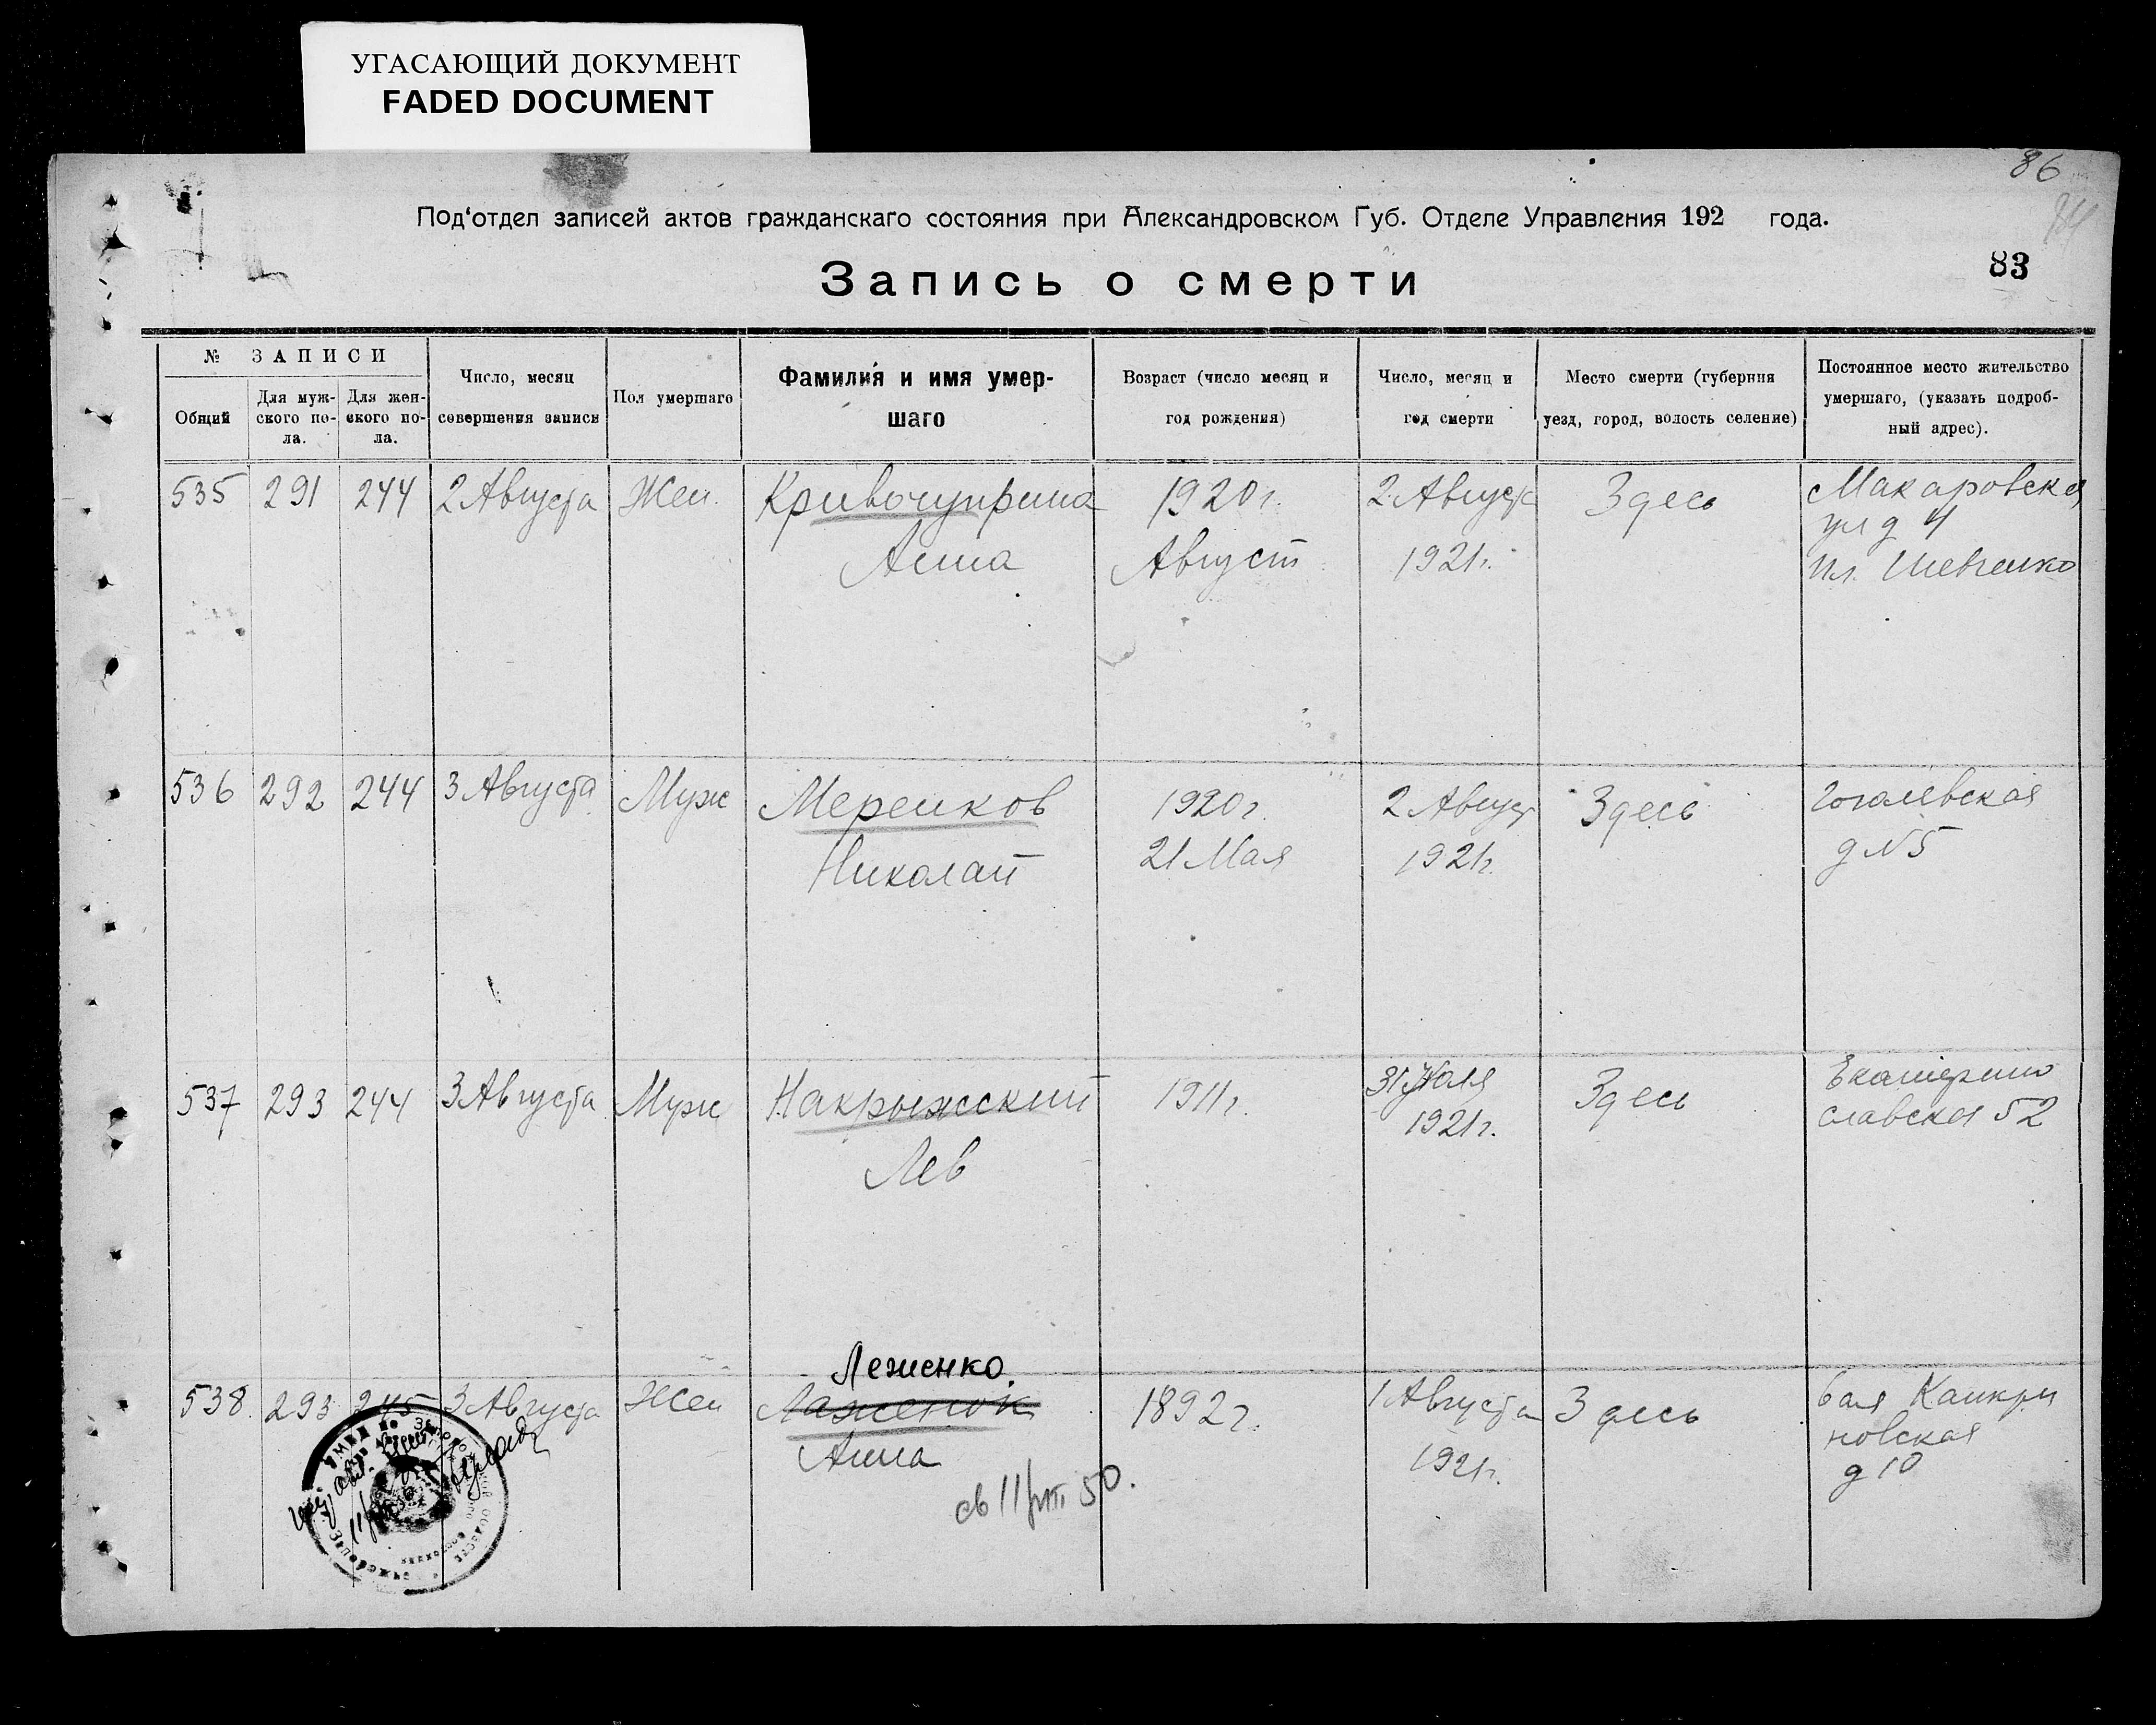 УГАСАЮЩИЙ ДОКУМЕНТ
FADED DOCUMENT
86
Под'отдел записей актов гражданскаго состояния при Александровском Губ. Отделе Управления 192 года.
83
Запись о смерти
№ ЗАПИСИ
Общий
Для муж-
ского по-
ла.
Для жен-
ского по-
ла.
Число, месяц
совершения записи
Пол умершаго
Фамилия и имя умер-
шаго
Возраст (число месяц и
год рождения)
Число, месяц и
год смерти
Место смерти (губерния
уезд, город, волость селение)
Постоянное место жительство
умершаго, (указать подроб-
ный адрес).
535 291 244 2 Августа Жен. Кривочуприна 1920 г. 2 Август Здесь Макаровская
Анна Август 1921 г. ул д 4
пл. Шевченко
536 292 244 3 Августа Муж Меренков 1920 г. 2 Август Здесь Гоголевская
Николай 21 Мая 1921 г. д N 5
537 293 244 3 Августа Муж Накрыжский 1911 г. 31 Июля Здесь Екатерино
Лев 1921 г. славская 52
Леженко.
538 293 245 3 Августа Жен Лаженок 1892 г. 1 Августа Здесь бая Канкри
Анна 1921 г. новская
д 10
св 11/VIII 50.